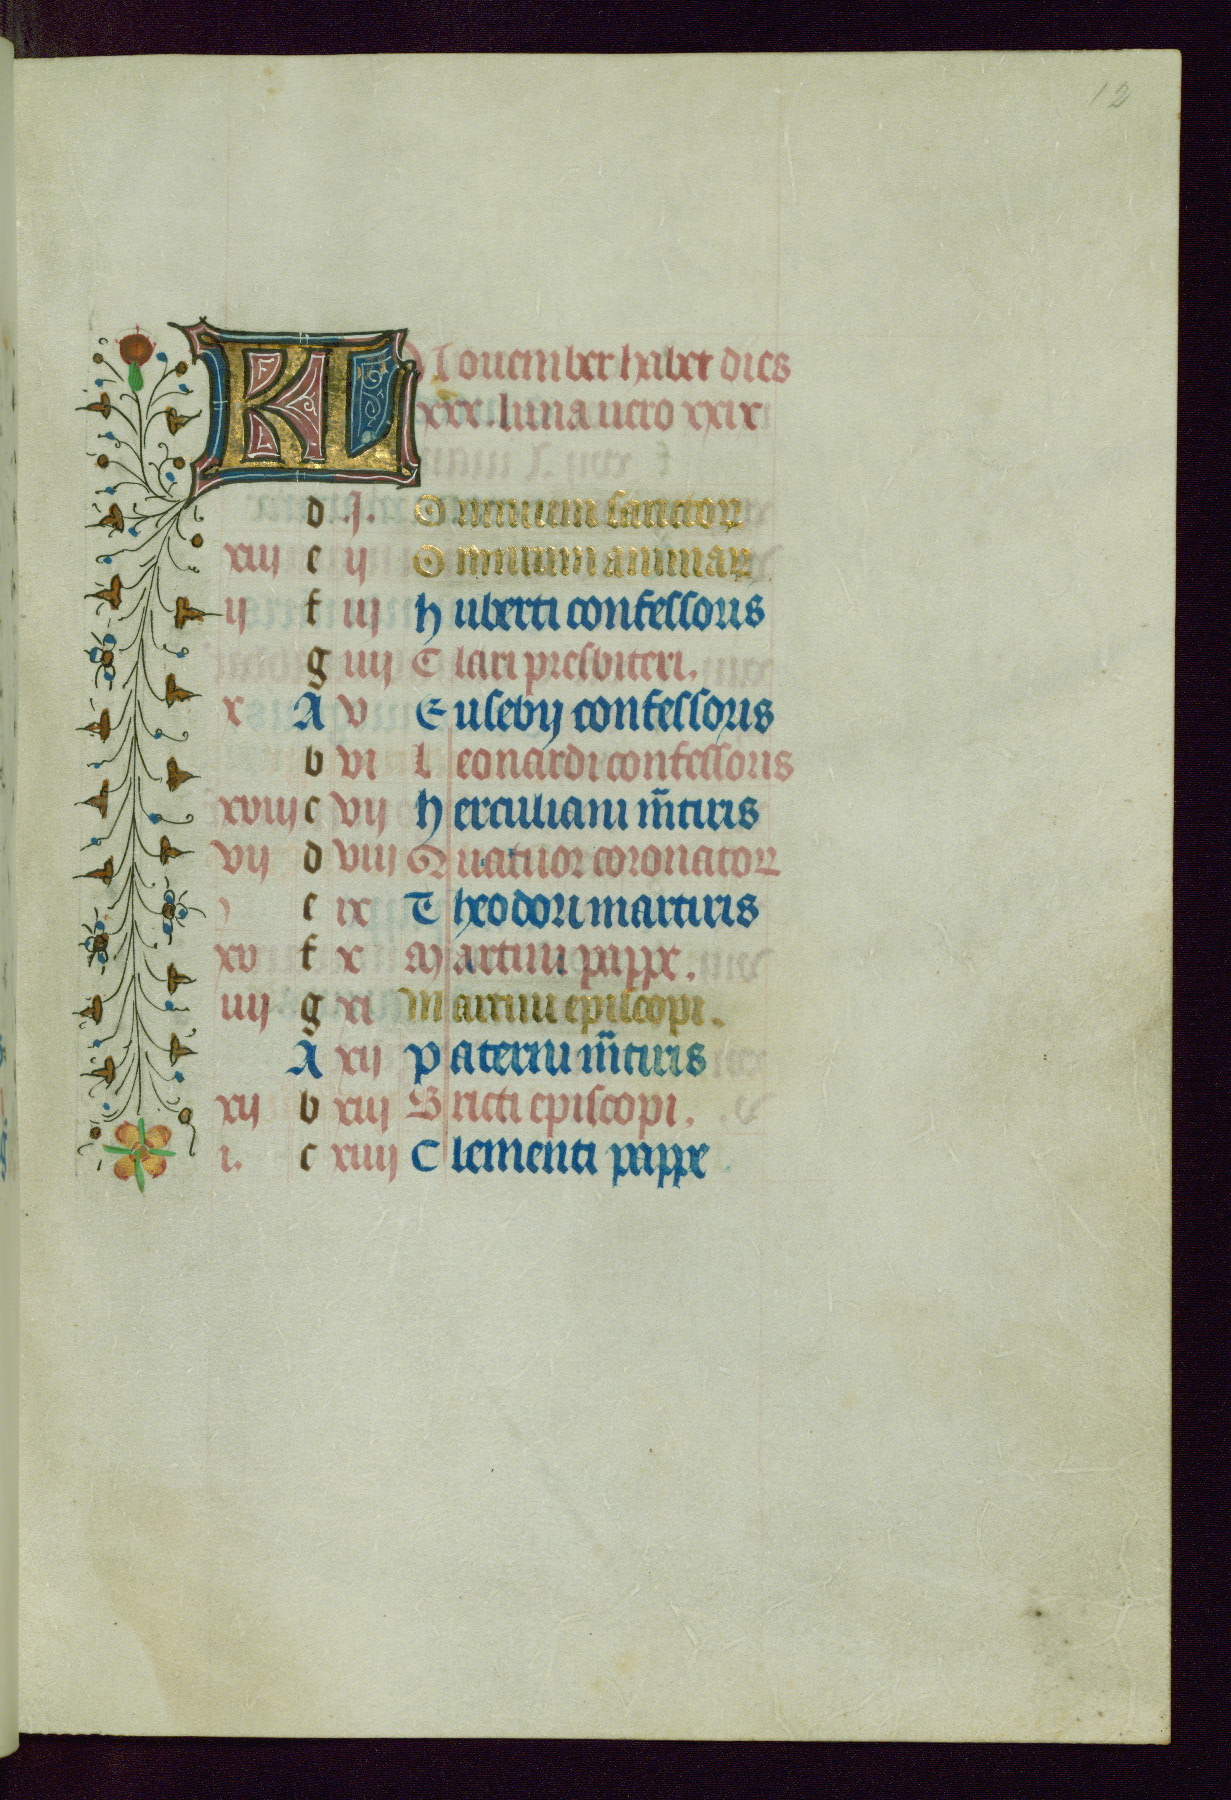 12
KL Nouember habet dies
xxx. luna uero xxix
d .j. Omnium sanctoꝝ
xiij e ij Omnium animaꝝ
ij f iij Huberti confessoris
g iiij Clari presbiteri.
x A v Eusebij confessoris
b vi Leonardi confessoris
xviij c vij Herculiani m̄tiris
vij d viij Quatuor coronatoꝝ
e ix Theodori martiris
xv f x Martini pappe.
iiij g xi Martini episcopi.
A xij Paterni m̄tiris
xij b xiij Bricti episcopi.
i. c xiiij Clementi pappe